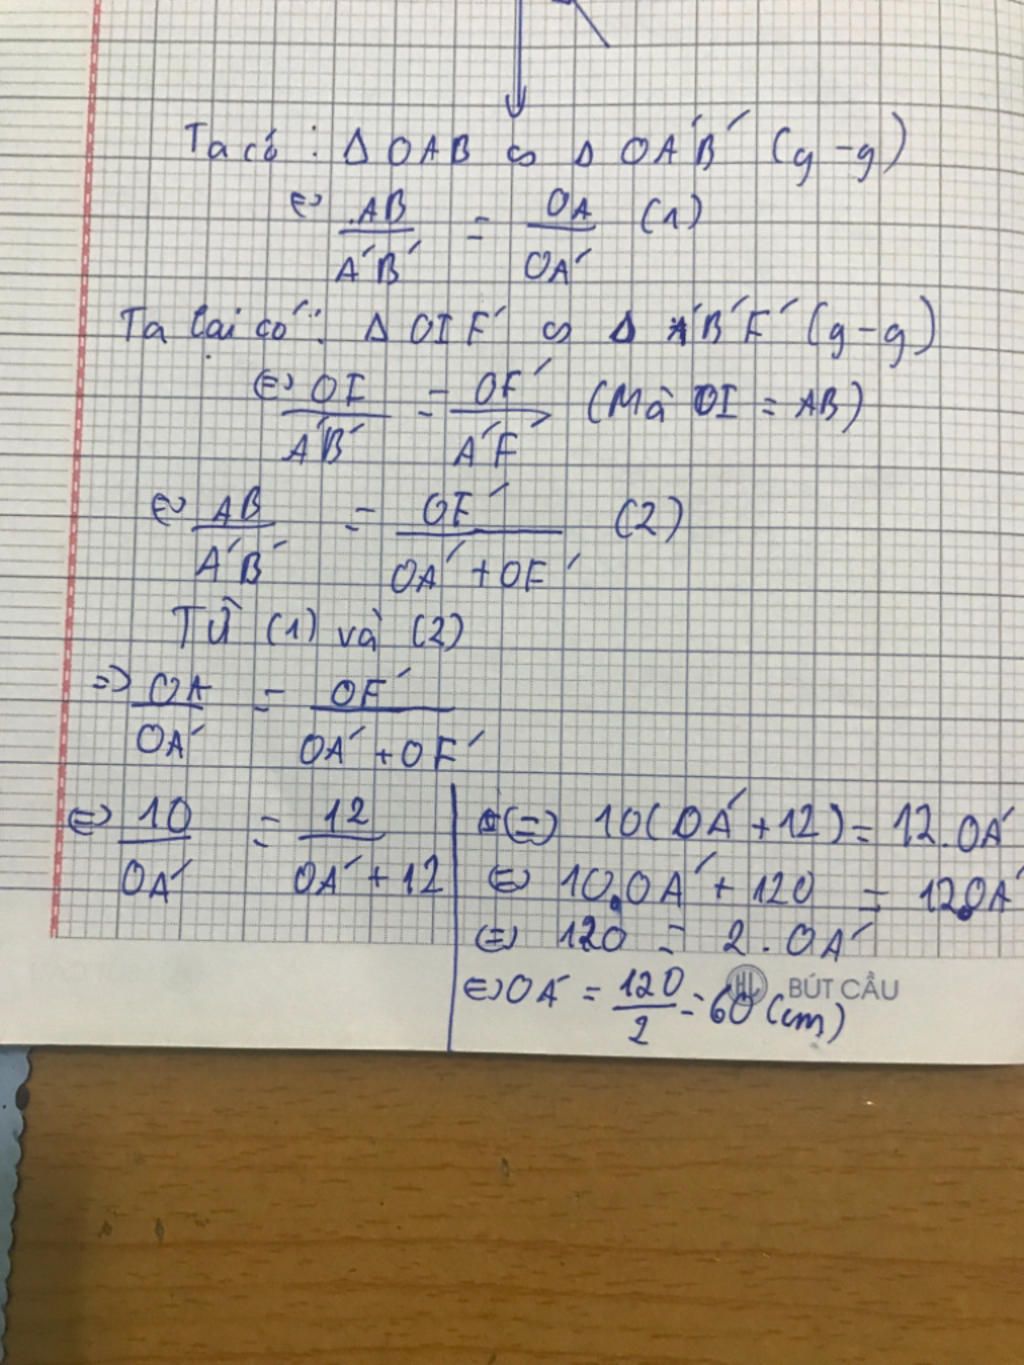 Ta có : Δ OAB ∽ Δ OA'B' (g-g)
⇔ AB/A'B' = OA/OA' (1)
Ta lại có : Δ OIF' ∽ Δ A'B'F' (g-g)
⇔ OI/A'B' = OF'/A'F' (Mà OI = AB)
⇔ AB/A'B' = OF'/OA' + OF' (2)
Từ (1) và (2)
=> OA/OA' = OF'/OA' + OF'
⇔ 10/OA' = 12/OA' + 12
⇔ 10(OA' + 12) = 12.OA'
⇔ 10.OA' + 120 = 12.OA'
⇔ 120 = 2.OA'
⇔ OA' = 120/2 = 60 (cm)
BÚT CẦU